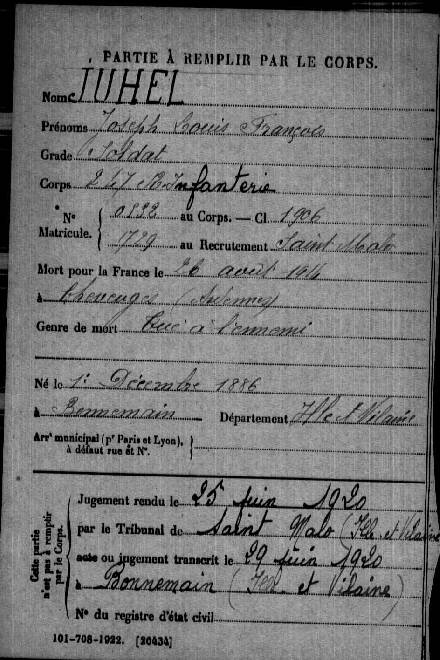 PARTIE À REMPLIR PAR LE CORPS.
Nom JUHEL
Prénoms Joseph Louis François
Grade Soldat
Corps 247 R. Infanterie
N° 0832 au Corps. — Cl 1906
Matricule. 1729 au Recrutement Saint Malo
Mort pour la France le 26 août 1914
à Cheveuges (Ardennes)
Genre de mort Tué à l'ennemi
Né le 1er Décembre 1886
à Bonnemain Département Ille et Vilaine
Arrt municipal (pr Paris et Lyon),
à défaut rue et N°.
Cette partie
n'est pas à remplir
par le Corps.
Jugement rendu le 25 juin 1920
par le Tribunal de Saint Malo (Ille et Vilaine
acte ou jugement transcrit le 29 juin 1920
à Bonnemain (Ille et Vilaine)
N° du registre d'état civil
101-708-1922. [26434]